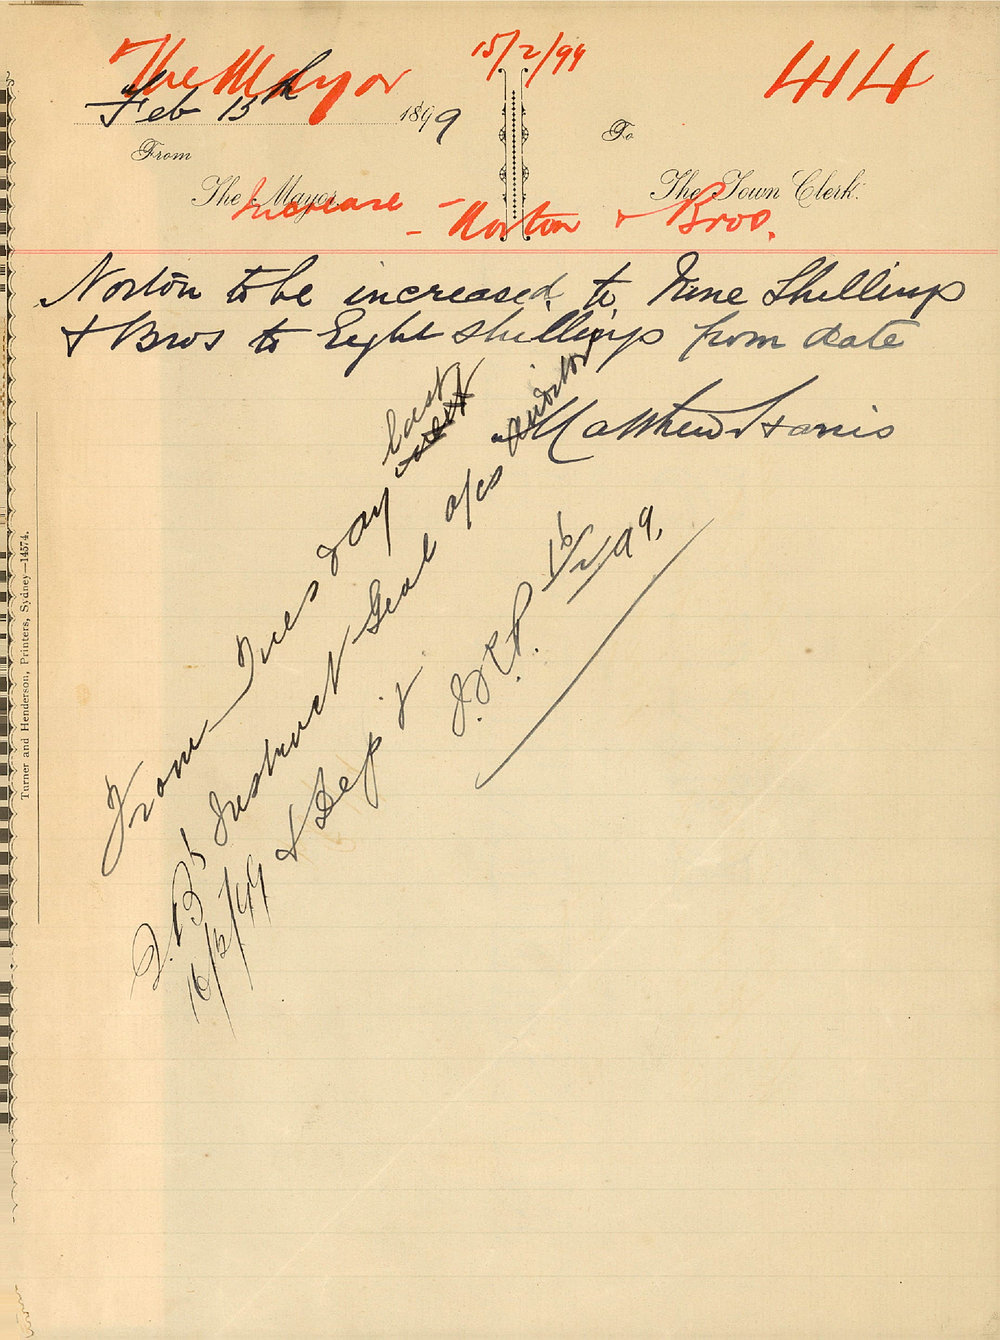 The Mayor 15/2/99 414
Feb 15th 1899
From To
The Mayor The Town Clerk.
Increase - Norton & Bros.
Norton to be increased to Nine Shillings
& Bros to Eight Shillings from date
Matthew Harris
From Tuesday last
Instruct Geal a/cs auditor
& Dep
16/2/99.
16/2/99
Turner and Henderson, Printers, Sydney—14574.